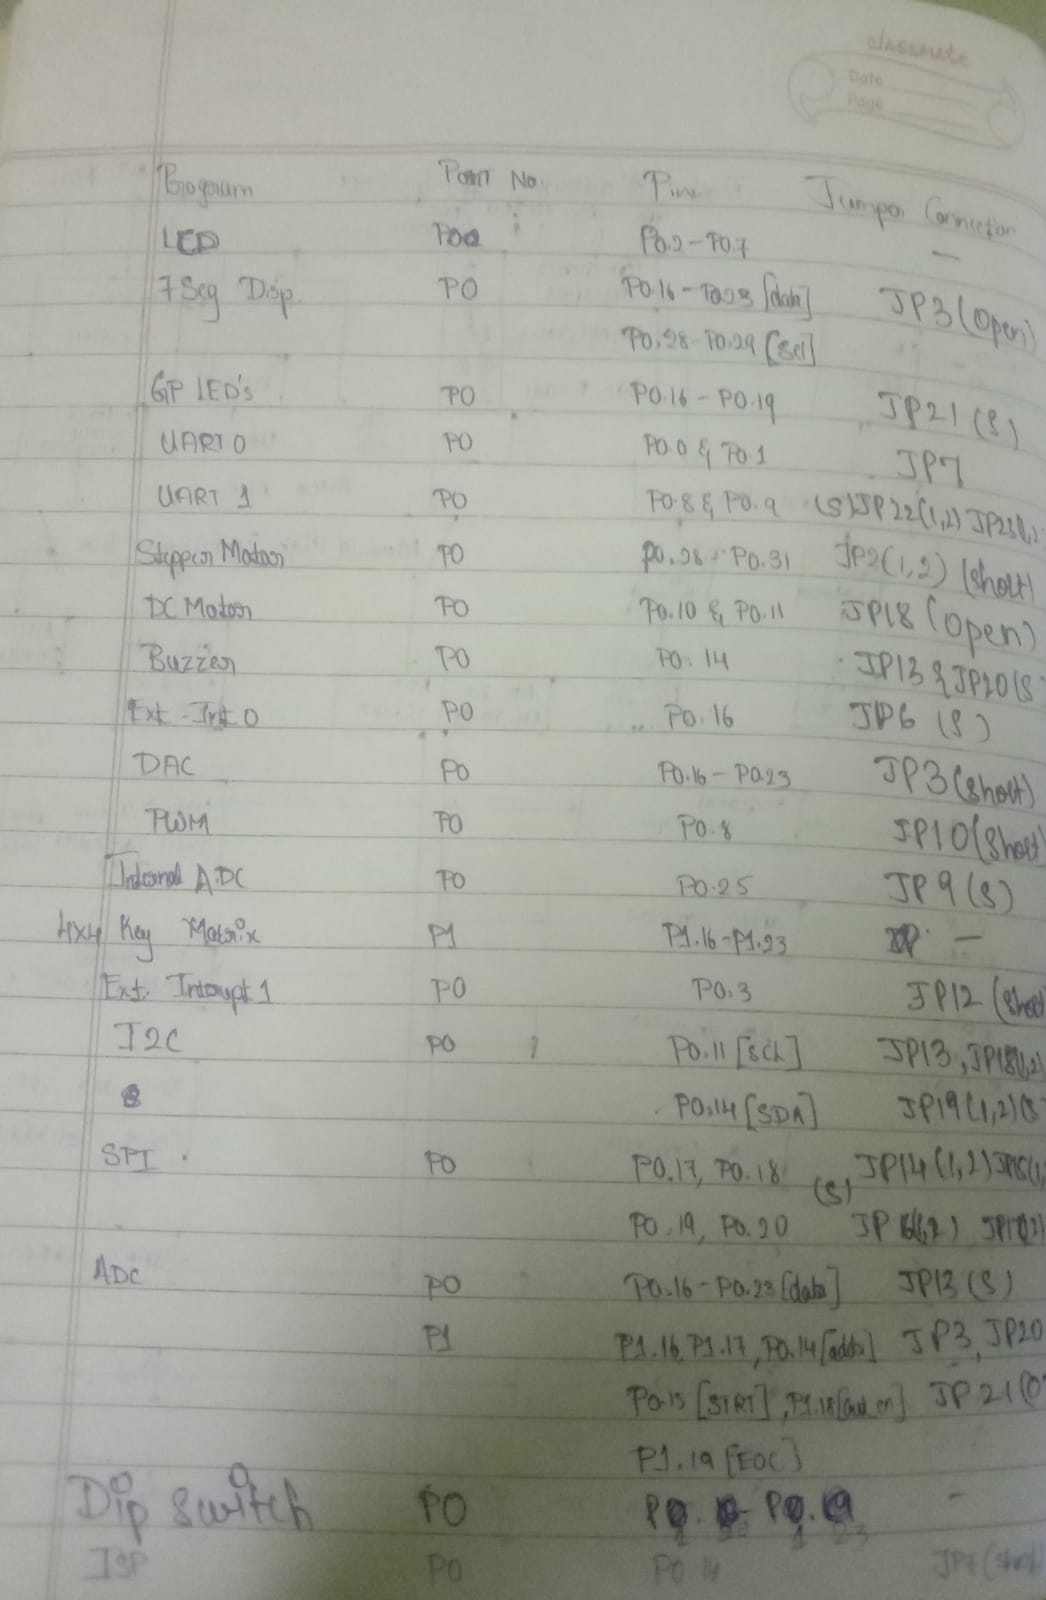 classmate
Date
Page
Program Port No. Pin Jumper Connection
LED P0.2-P0.7 —
7 Seg Disp. P0 P0.16-P0.23 [data] JP3 (Open)
P0.28-P0.29 [Sel]
GP LED's P0 P0.16 - P0.19 JP21 (S)
UART 0 P0 P0.0 & P0.1 JP7
UART 1 P0 P0.8 & P0.9 (S) JP22(1,2)
Stepper Motor P0 P0.28 - P0.31 JP2(1,2) (short)
DC Motor P0 P0.10 & P0.11 JP18 (Open)
Buzzer P0 P0.14 JP13 & JP20 (S
Ext. Int 0 P0 P0.16 JP6 (S)
DAC P0 P0.16 - P0.23 JP3 (short)
PWM P0 P0.8 JP10 (Short
Internal ADC P0 P0.25 JP9 (S)
4x4 Key Matrix P1 P1.16-P1.23 —
Ext. Interupt 1 P0 P0.3 JP12 (short
I2C P0 P0.11 [SCL] JP13, JP18(1,2)
P0.14 [SDA] JP19(1,2)(S
SPI P0 P0.17, P0.18 JP14 (1,2) JP15(1,
P0.19, P0.20 (S)
ADC P0 P0.16-P0.23 [data] JP13 (S)
P1 P1.16, P1.17, P0.14 JP3, JP20
P0.15 [STRT], P1.18 JP21 (O
P1.19 [EOC]
Dip switch P0 -
ISP P0 P0 14 JP7 (short